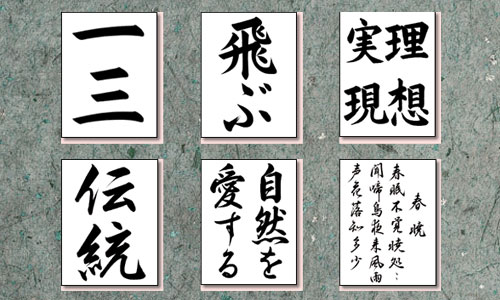 一三
飛ぶ
理想
実現
伝統
自然を
愛する
春暁
春眠不覚暁処々
聞啼鳥夜来風雨
声花落知多少